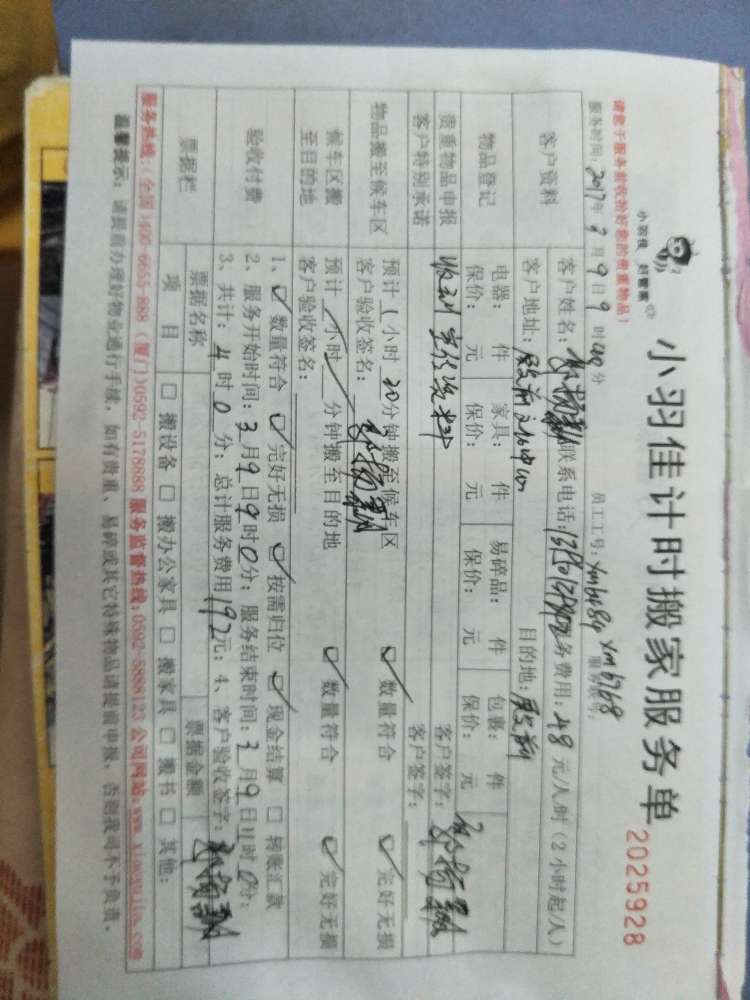 小羽佳计时搬家服务单
2025928
小羽佳 好管家
请您于服务前收拾好您的贵重物品!
服务时间: 2017年 3月9日9时00分 员工工号: 服务账号:
客户资料 客户姓名: 联系电话: 服务费用: 48 元/人时(2小时起/人)
客户地址: 殿前 目的地: 殿前
物品登记 电器: 件 家具: 件 易碎品: 件 包裹: 件
保价: 元 保价: 元 保价: 元 保价: 元
贵重物品申报 客户签字:
客户特别承诺 客户签字:
物品搬至候车区 预计 1 小时 20 分钟搬至候车区 数量符合 完好无损
客户验收签名:
候车区搬至目的地 预计 小时 分钟搬至目的地 数量符合 完好无损
客户验收签名:
验收付费 1、 数量符合 完好无损 按需归位 现金结算 □ 转账汇款
2、服务开始时间: 3月9日9时0分; 服务结束时间: 3月9日11时0分;
3、共计: 4时0分; 总计服务费用192元; 4、客户验收签字:
票据栏 票据名称 票据金额
项目 □ 搬设备 □ 搬办公家具 □ 搬家具 □ 搬书 □ 其他:
服务热线:(全国)400-6655-888 (厦门)0592-5178888 服务监督热线:0592-5888123 公司网站:www.xiaoyujia.com
温馨提示: 请提前办理好物业通行手续, 如有贵重、易碎或其它特殊物品请提前申报, 否则我司不予负责。